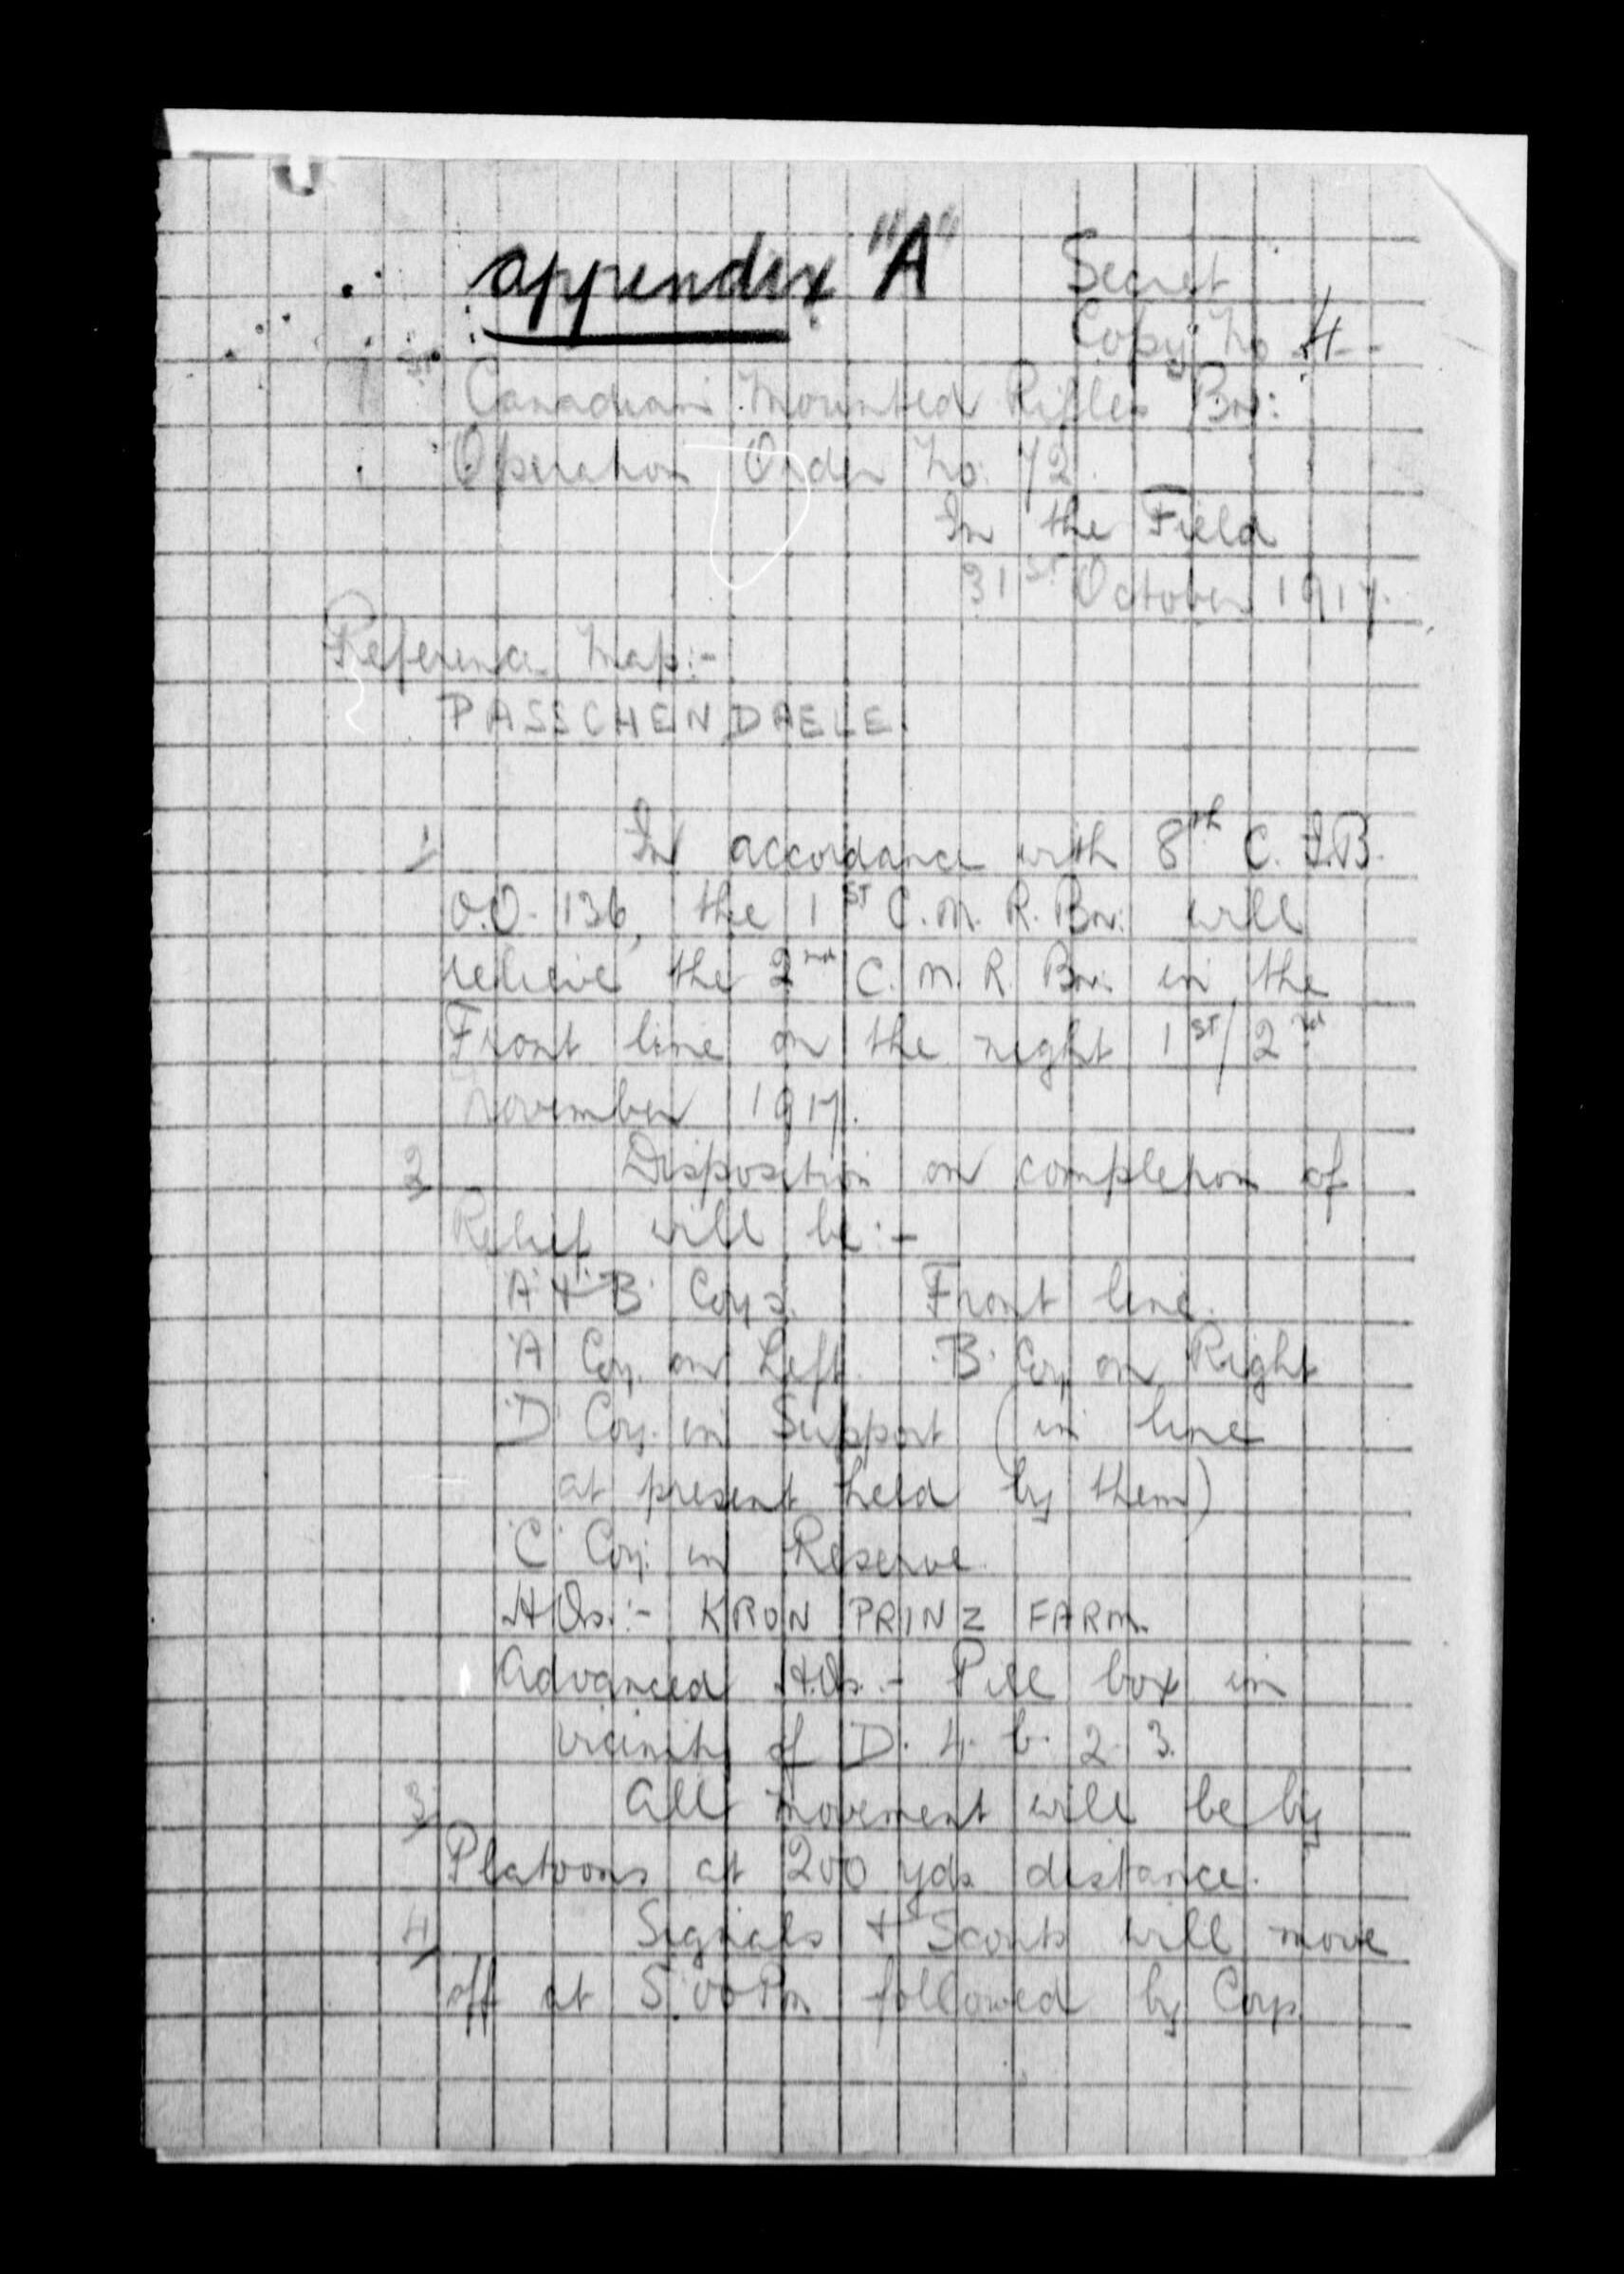 Appendix "A"
Secret
Copy No 4
1st Canadian Mounted Rifles Bn:
Operation Order No. 72.
In the Field
31st October 1917.
Reference Map:-
PASSCHENDAELE.
1/ In accordance with 8th C.I.B.
O.O. 136, the 1st C.M.R. Bn: will
relieve the 2nd C.M.R. Bn. in the
Front line on the night 1st/2nd
November 1917.
2/ Disposition on completion of
Relief will be:-
'A' + 'B' Coys. Front line.
'A' Coy. on Left. 'B' Coy on Right
'D' Coy. in Support (in line
at present held by them)
'C' Coy. in Reserve.
HQs:- KRON PRINZ FARM.
Advanced HQs.- Pill box in
vicinity of D.4.b.2.3.
3/ All movement will be by
Platoons at 200 yds distance.
4/ Signals + Scouts will move
off at 5.00 Pm followed by Coys.